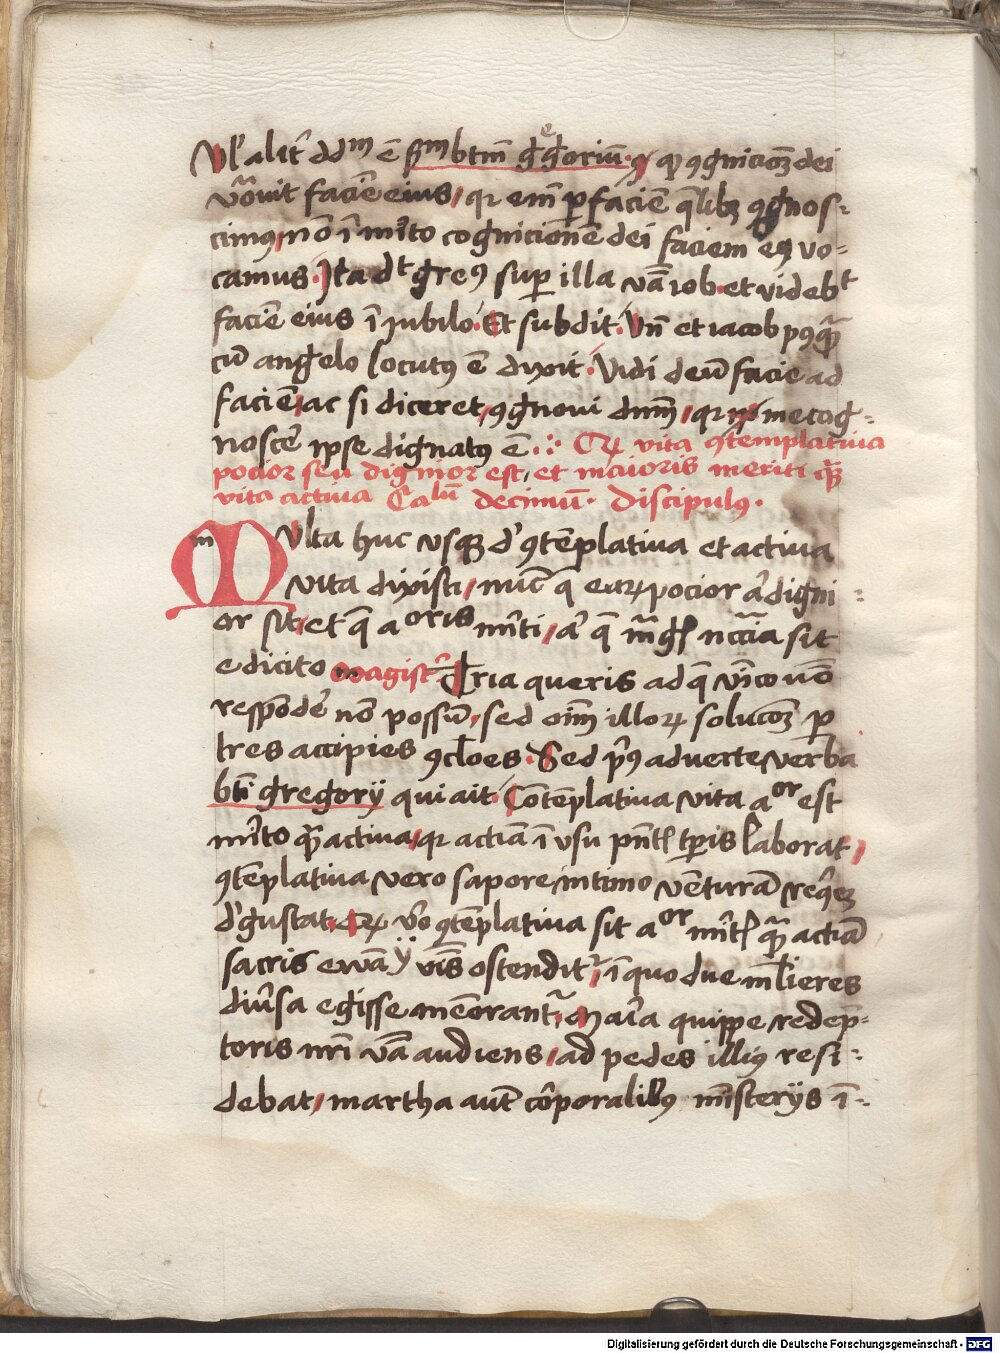 Vl' alit' dd̄m ē s̄m btm̄ g̊gorium· ꝙ ꝓ ꝯgnicioꝫ dei
vōuit faciē eius / qr em̄ ꝑ faciē q̄libꝫ ꝯgnos-
cimꝰ / nō īm'ito cognicionē dei faciem eꝰ vo-
camus· Ita dt greꝰ suꝑ illa v̄ba iob· et videbt
faciē eius ī iubilo· Et subdit· Vn̄ et iacob pꝰꝙ̄
cū angelo locutꝰ ē dixit· Vidi deū facie ad
faciē / ac si diceret / ꝯgnoui dn̄m / qr me cog-
noscē ipse dignatꝰ ē ·:· Qꝛ vita ꝯtemplatiua
pocior seu dignior est / et maioris meriti ꝙ̄
vita actiua Calm̄ decimū· Discipulꝰ·
MUlta huc vsqꝫ d' ꝯtēplatiua et actiua
vita dixisti / nūc q̄ eaꝝ pocior a' digni-
or sit / et q̄ aoris m'iti / a' q̄ m̄gꝭ nc̄cia sit
edicito Magist' Tria queris ad q̄ vnico uō
respondē nō possū / sed oīm illoꝝ solucōꝫ ꝑ
tres accipies ꝯcloēs· Sed p'ꝰ aduerte verba
bti gregorÿ qui ait· Cōtēplatiua vita aor est
m'ito ꝙ̄ actiua / qr actiua ī vsu pn̄tꝭ tp̄is laborat /
ꝯtēplatiua vero sapore intimo venturā req'eꝫ
d'gustat· Qꝝ v'o ꝯtēplatiua sit aor m'itꝭ ꝙ̄ actiua
sacris ewāÿ v̄bis ostendit' / ī quo due ml'ieres
diu'sa egisse mēorant' / Maria quippe redēp-
toris nr̄i v̄ba audiens / ad pedes illiꝰ resi-
debat / martha aūt cōrporalibꝰ mīsterijs ī-
Digitalisierung gefördert durch die Deutsche Forschungsgemeinschaft - DFG